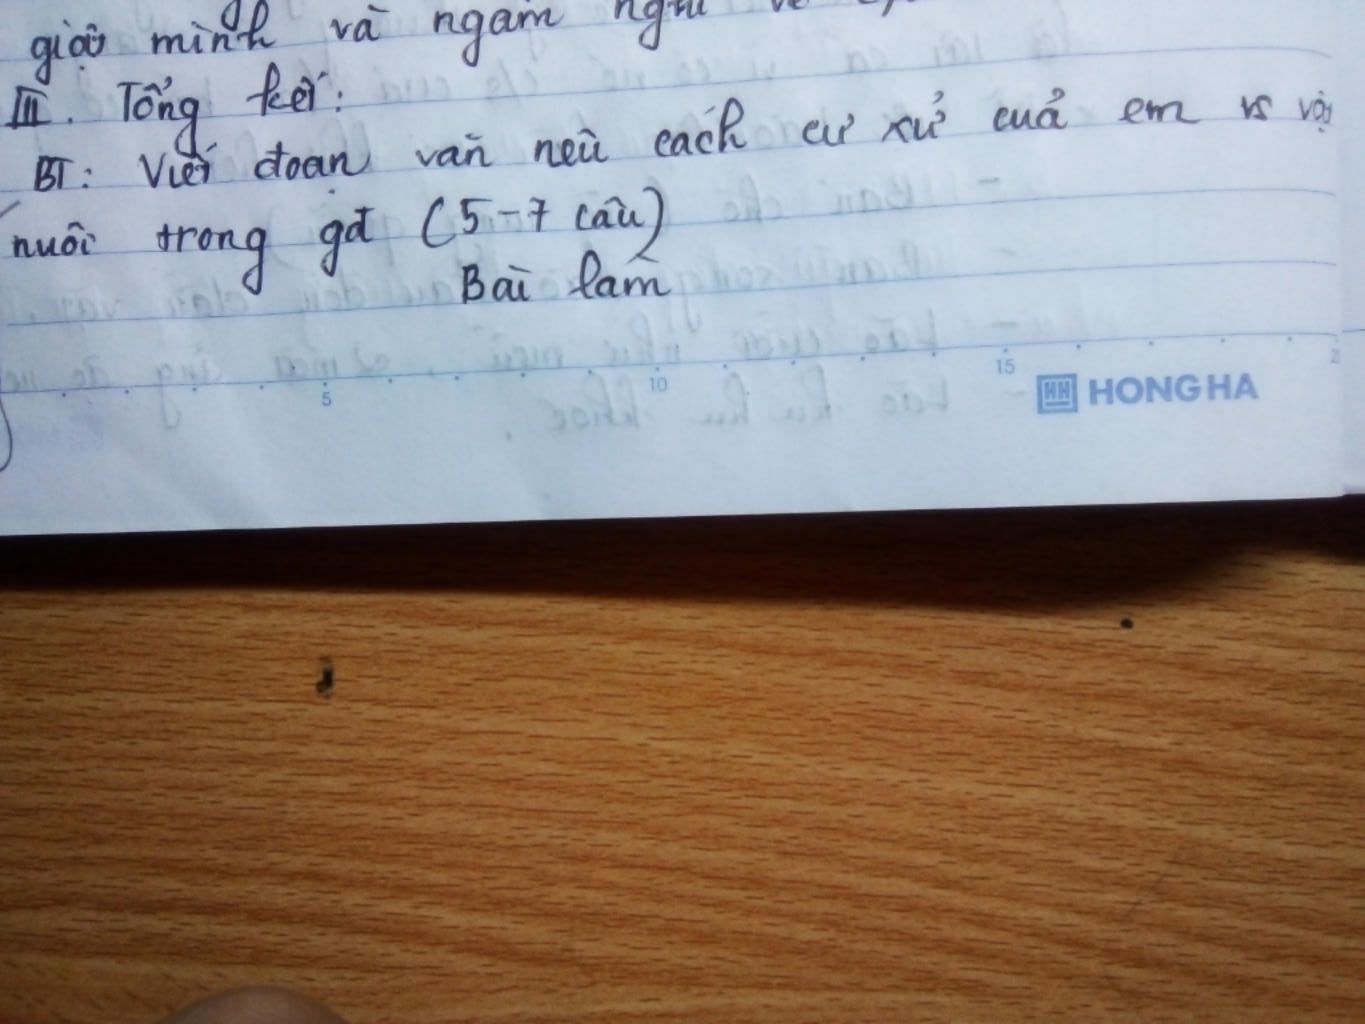 giới mình và ngẫm nghĩ về
III. Tổng kết:
BT: Viết đoạn văn nêu cách cư xử của em vs vật
nuôi trong gđ (5-7 câu)
Bài làm
5 10 15 2
HH HONG HA